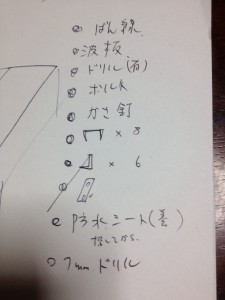 ばん線
波板
ドリル(石)
ボルト
かさ釘
× 8
× 6
防水シート(蓋)
探してから
7mm ドリル